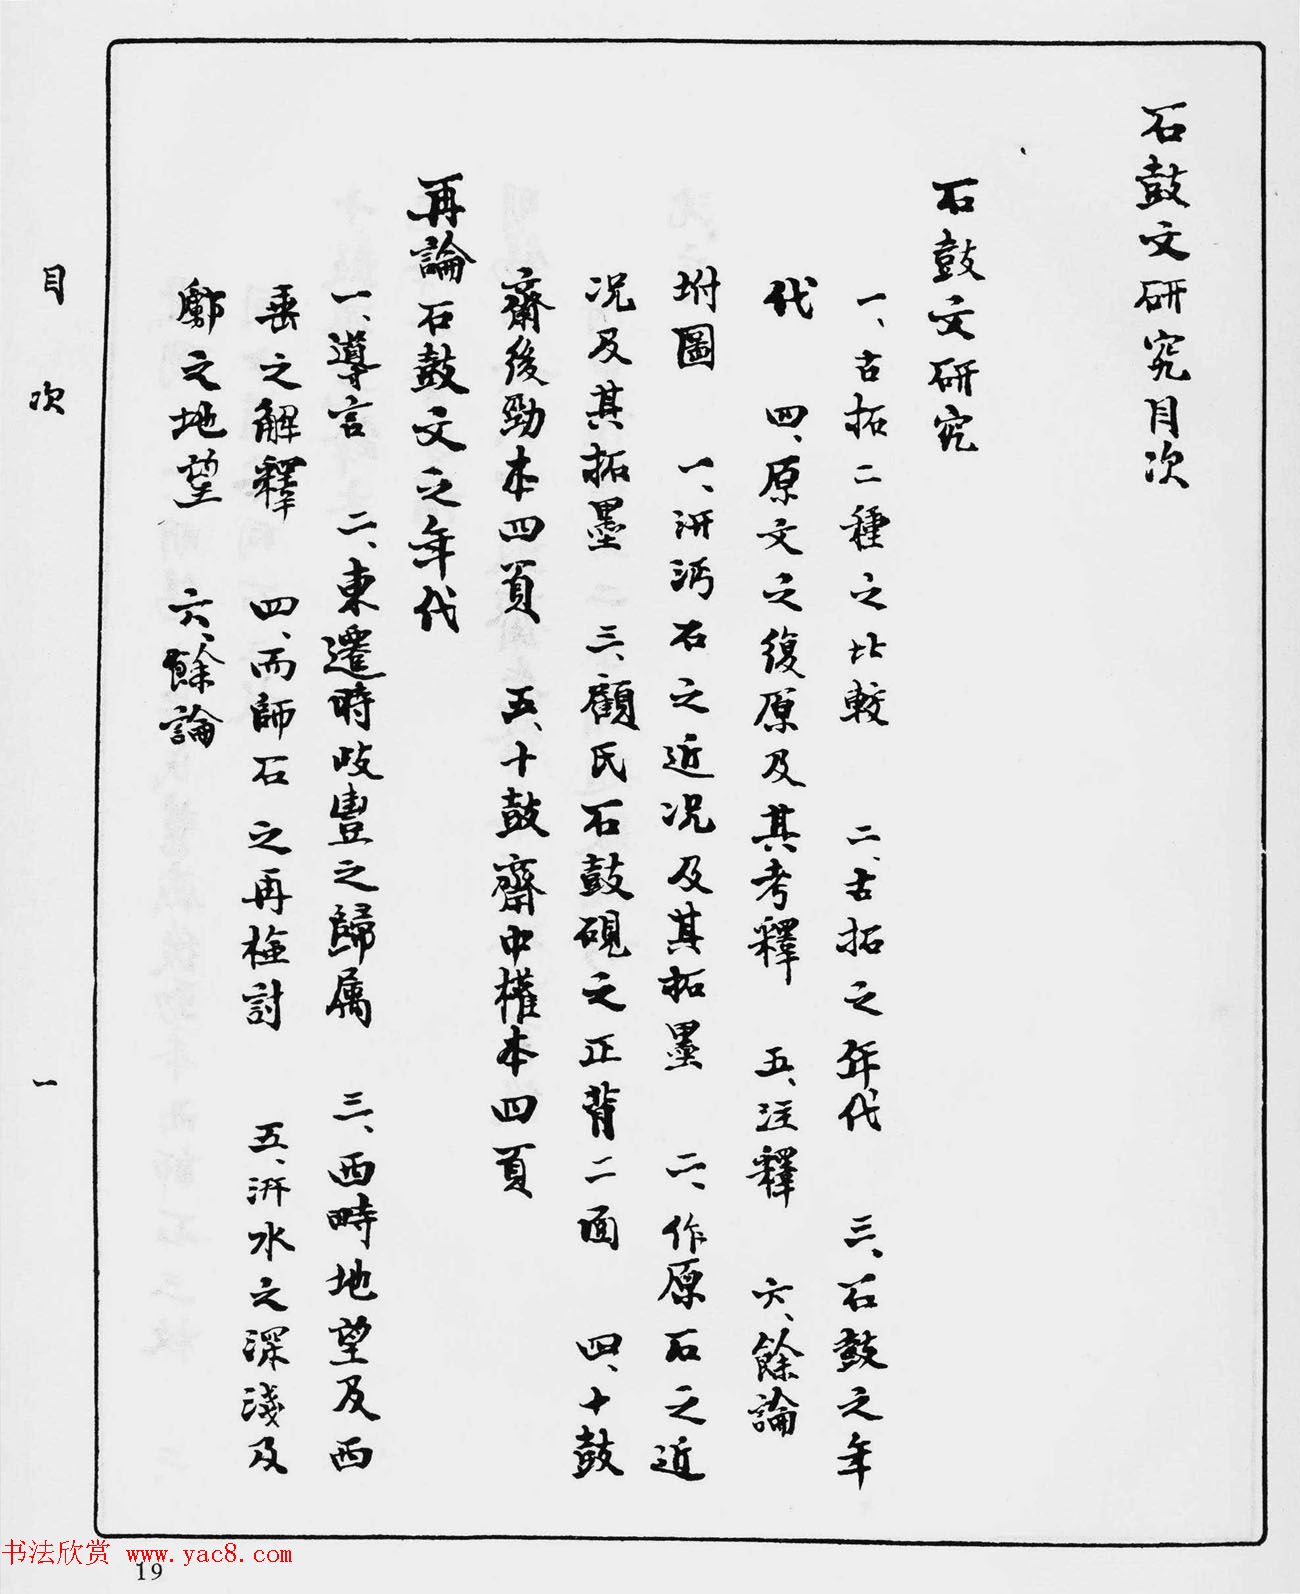 石鼓文研究目次
石鼓文研究
一、古拓二種之比較　二、古拓之年代　三、石鼓之年
代　四、原文之復原及其考釋　五、注釋　六、餘論
坿圖　一、汧沔石之近況及其拓墨　二、作原石之近
況及其拓墨　三、顧氏石鼓硯之正背二面　四、十鼓
齋後勁本四頁　五、十鼓齋中權本四頁
再論石鼓文之年代
一、導言　二、東遷時歧豐之歸属　三、西畤地望及西
垂之解釋　四、而師石之再檢討　五、汧水之深淺及
鄜之地望　六、餘論
目次
一
19
书法欣赏 www.yac8.com